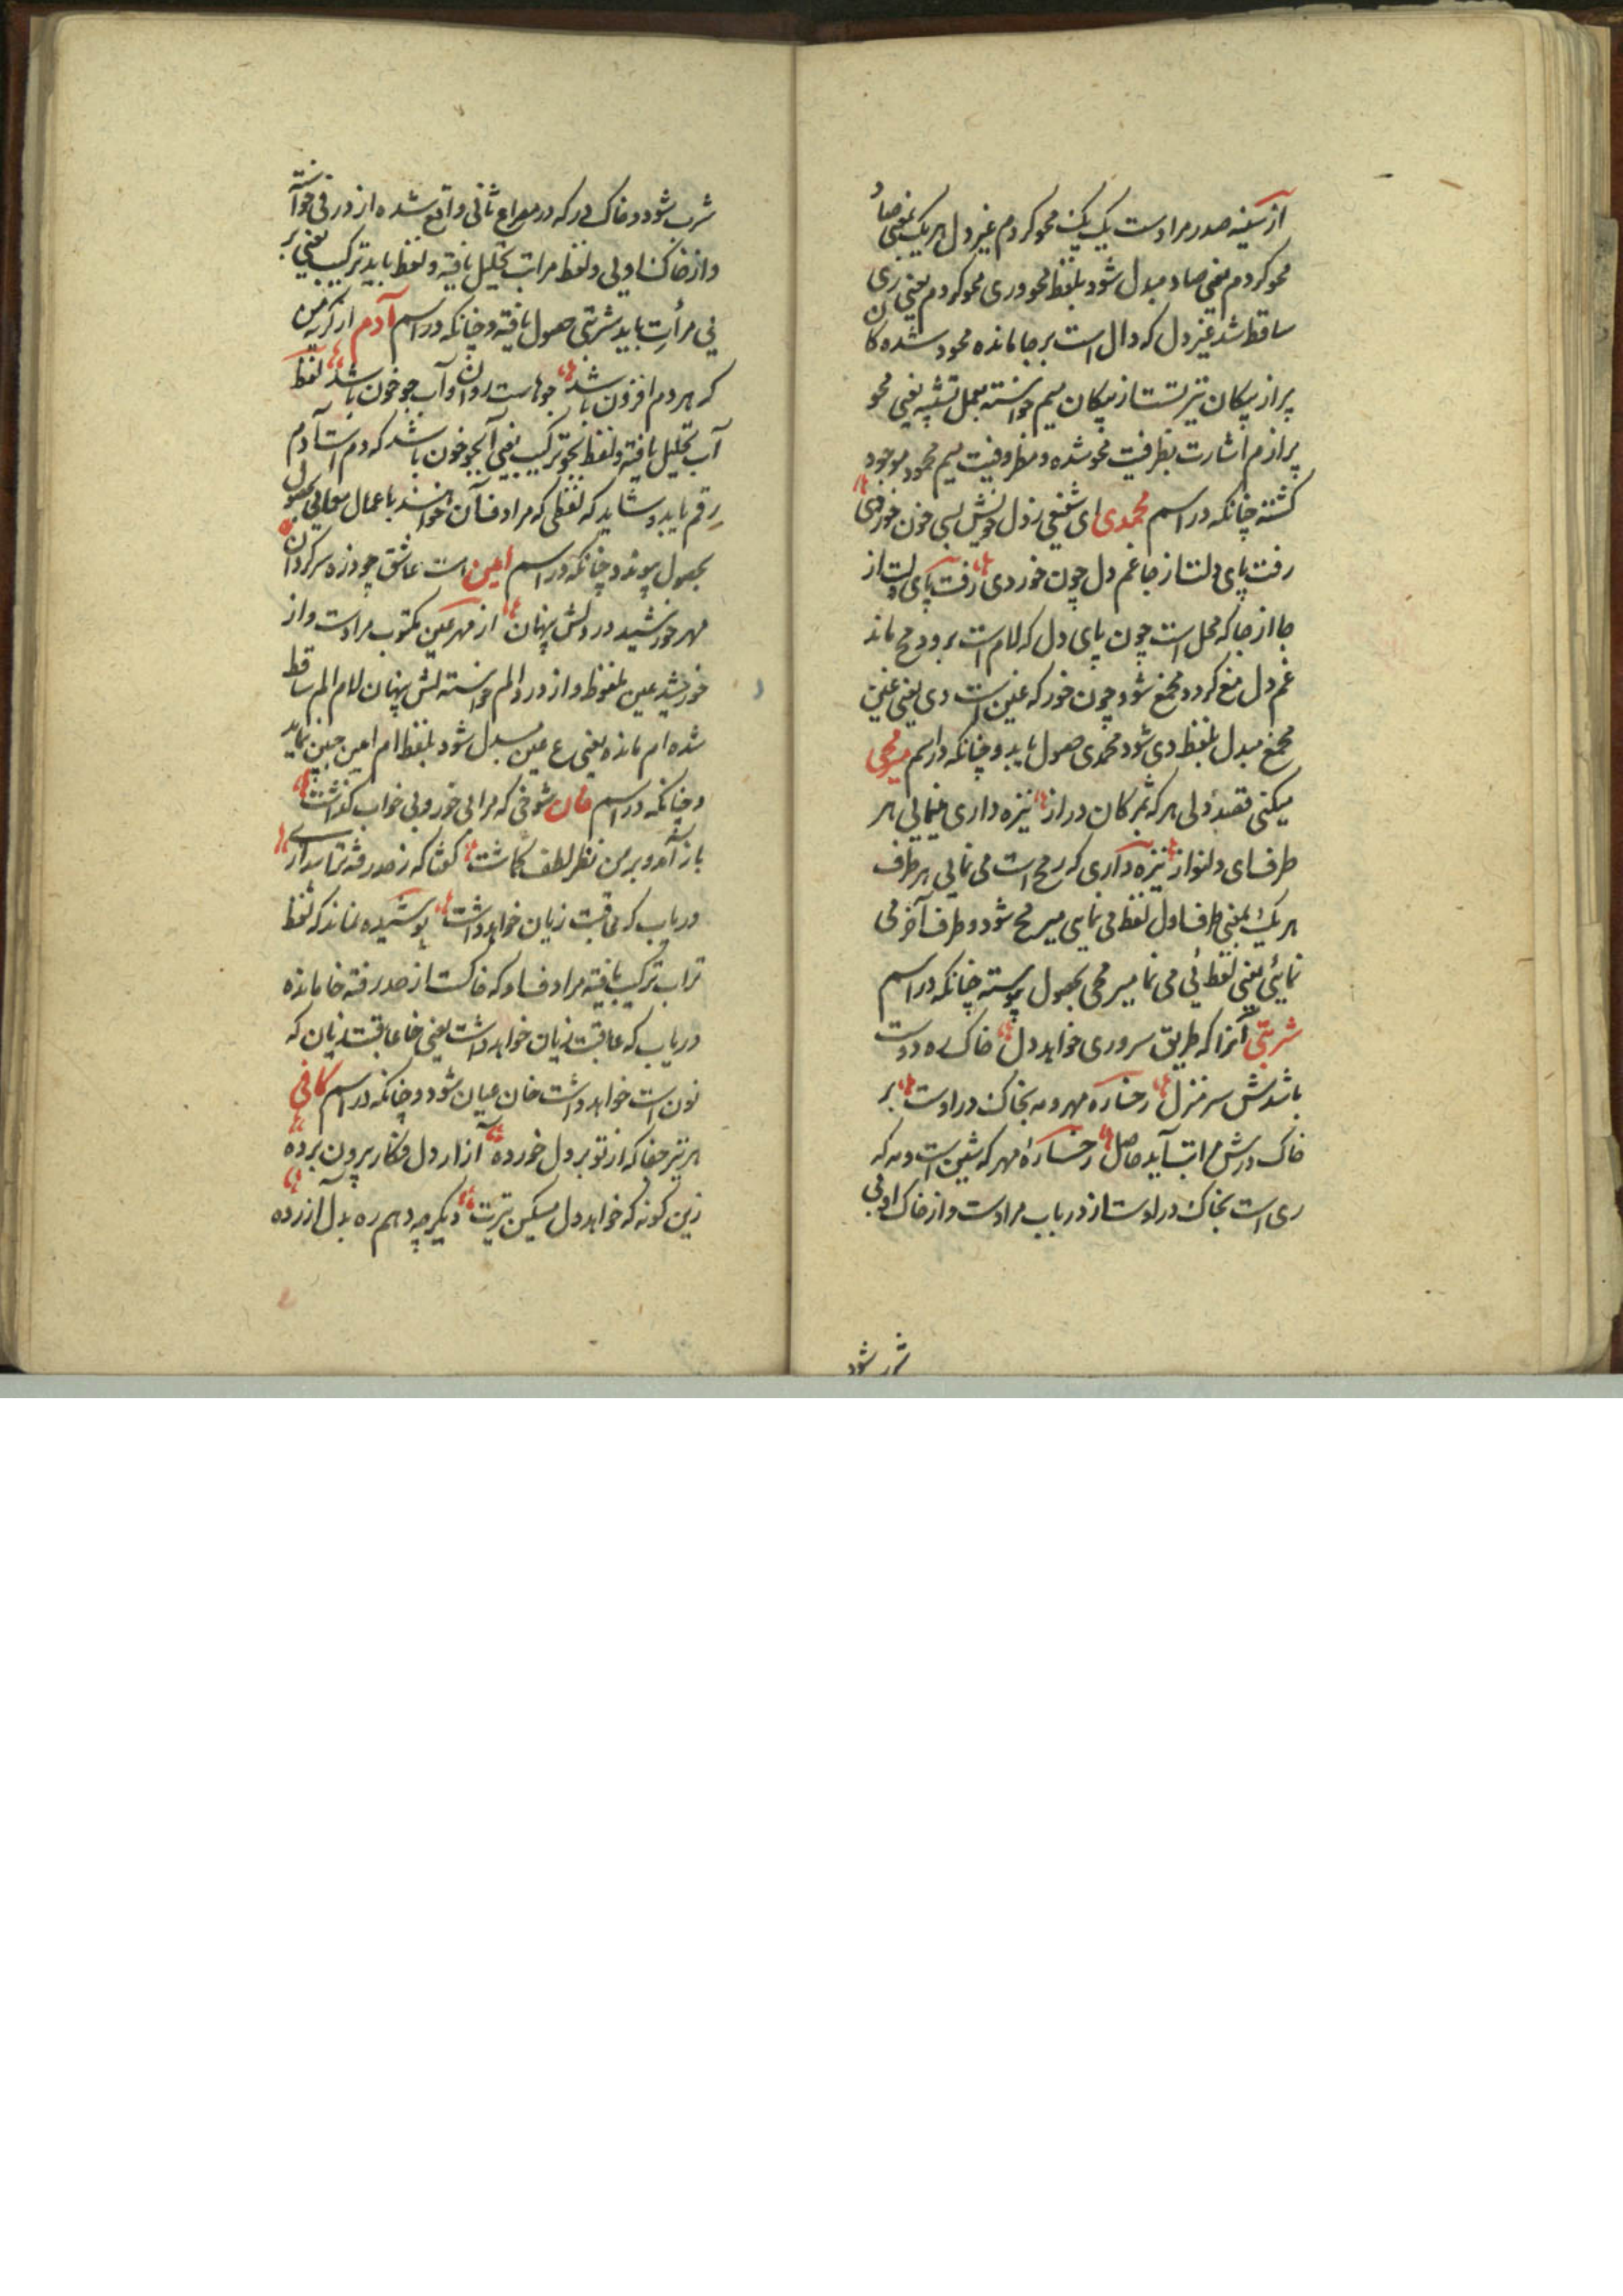 از سینه صدر مرادست یک یک محو کردم غیر دل هر یک یعنی صاد
محو کردم یعنی صاد مبدل شود بلفظ محو وری محو کردم یعنی ری
ساقط شد غیر دل که دال است بر جا مانده محود شده کان
پر از پیکان تیر تست از پیکان میم خواسته بعمل تشبیه یعنی محو
پر از م اشارت بظرفیت محو شده و مظروفیت میم محمود موجود
گشته چنانکه در اسم محمدی ای شفیعی ز دل خویش بسی خون خوردی
رفت پای دلت از جا غم دل چون خوردی رفت پای دلت از
جا از جا که محل است چون پای دل که لام است برود مح ماند
غم دل مغ گردد محمغ شود چون خور که غین است دی یعنی غین
محمغ مبدل بلفظ دی شود محمدی حصول یابد و چنانکه در اسم میرمحمی
میکنی قصد دلی هر که بمژگان دراز نیزه داری مینمایی هر
طرف ای دلنواز نیزه داری که رمح است می نمایی هر طرف
هر یک یعنی طرف اول لفظ می نمایی میرمح شود و طرف آخر می
نمایی یعنی لفظ ئی می نما میرمحی بحصول پیوسته چنانکه در اسم
شربتی آنرا که طریق سروری خواهد دل خاک ره دوست
باشدش سر منزل رخساره مهر و مه بخاک در اوست بر
خاک درش مراتب آید حاصل رخساره مهر که شین است و مه که
ری است بخاک در اوست از در باب مرادست و از خاک او بی
شرب شود
شرب شود و خاک در که در مصراع ثانی واقع شده از در فی خواسته
و از خاک اولی و لفظ مراتب تحلیل یافته و لفظ باید ترکیب یعنی بر
نی مرأت باید شربتی حصول یافته و چنانکه در اسم آدم از گریه من
که هر دم افزون باشد جوهاست روان و آب جو خون باشد لفظ
آب تحلیل یافته و لفظ بجو ترکیب یعنی آ بجو خون باشد که دم است آدم
رقم یابد و شاید که لفظی که مرادف آن خواسته باشند باعمال معمایی بحصول
بحصول پیوندد چنانکه در اسم امین است عاشق چو ذره سرگردان
مهر خورشید در دلش پنهان از مهر عین مکتوب مرادست و از
خورشید عین ملفوظ و از درد الم خواسته لش پنهان لام الم ساقط
شده ام مانده یعنی ع عین مبدل شود بلفظ ام امین جبین نماید
و چنانکه در اسم خان شوخی که مرا بی خور و بی خواب گذاشت
باز آمد و بر من نظر لطف گماشت گفتا که ز صد رفته تراب دارے
دریاب که عاقبت زیان خواهد داشت پوشیده نماند که لفظ
تراب ترکیب یافته مرادف او که خاکست از صد رفته خا مانده
دریاب که عاقبت زیان خواهد داشت یعنی خا عاقبت زیان که
نون است خواهد داشت خان عیان شود و چنانکه در اسم کافی
هر تیر جفا که از تو بر دل خورده آزار دل فگار بیرون برده
زین گونه که خواهد دل مسکین تیرت دیگر چه دهم ره بدل آزرده